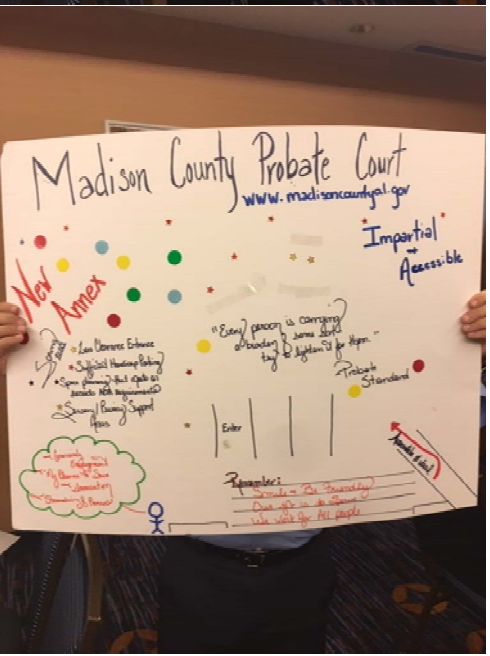 Madison County Probate Court
www.madisoncountyal.gov
Impartial
+
Accessible
New
Annex
Low Clearance Entrance
Sufficient Handicap Parking
Space planning that meets or
exceeds ADA requirements
Sensory/Privacy Support
Areas
"Every person is carrying
a burden of some sort
try to lighten it for them."
-Probate
Standard
Enter
Remember:
Smile + Be Friendly
Our job is to Serve
We work for All people